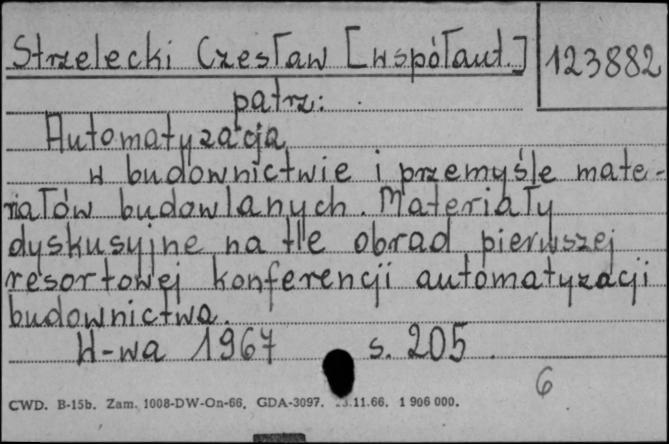 Strzelecki Czesław [współaut.] 123882
patrz:
Automatyzacja
w budownictwie i przemyśle mate-
riałów budowlanych. Materiały
dyskusyjne na tle obrad pierwszej
resortowej konferencji automatyzacji
budownictwa.
W-wa 1967 s. 205.
6
CWD. B-15b. Zam. 1008-DW-On-66, GDA-3097. .11.66. 1 906 000.